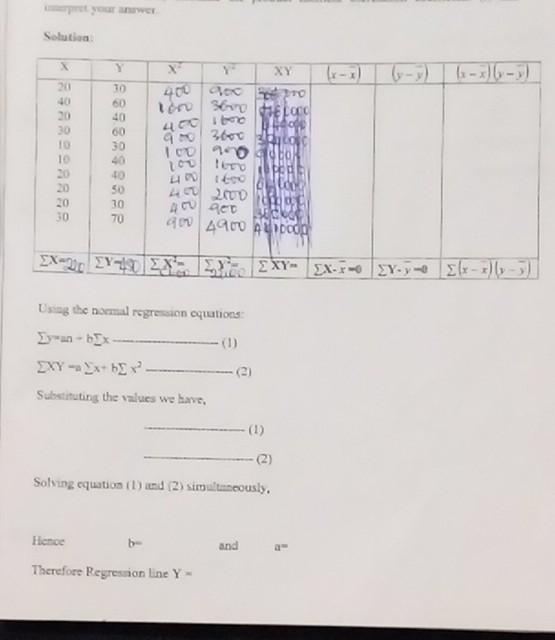 interpret your answer.
Solution:
X Y X² Y² XY (x-x̄) (y-ȳ) (x-x̄)(y-ȳ)
20 30 400 900
40 60 1600 3600
20 40 400 1600
30 60 900 3600
10 30 100 900
10 40 100 1600
20 40 400 1600
20 50 400
20 30 400 900
30 70 900 4900
∑X= ∑Y= ∑X²= ∑Y²= ∑XY= ∑X-x̄=0 ∑Y-ȳ=0 ∑(x-x̄)(y-ȳ)
Using the normal regression equations:
∑y=an + b∑x (1)
∑XY =a ∑x+ b∑ x² (2)
Substituting the values we have,
(1)
(2)
Solving equation (1) and (2) simultaneously,
Hence b= and a=
Therefore Regression line Y =